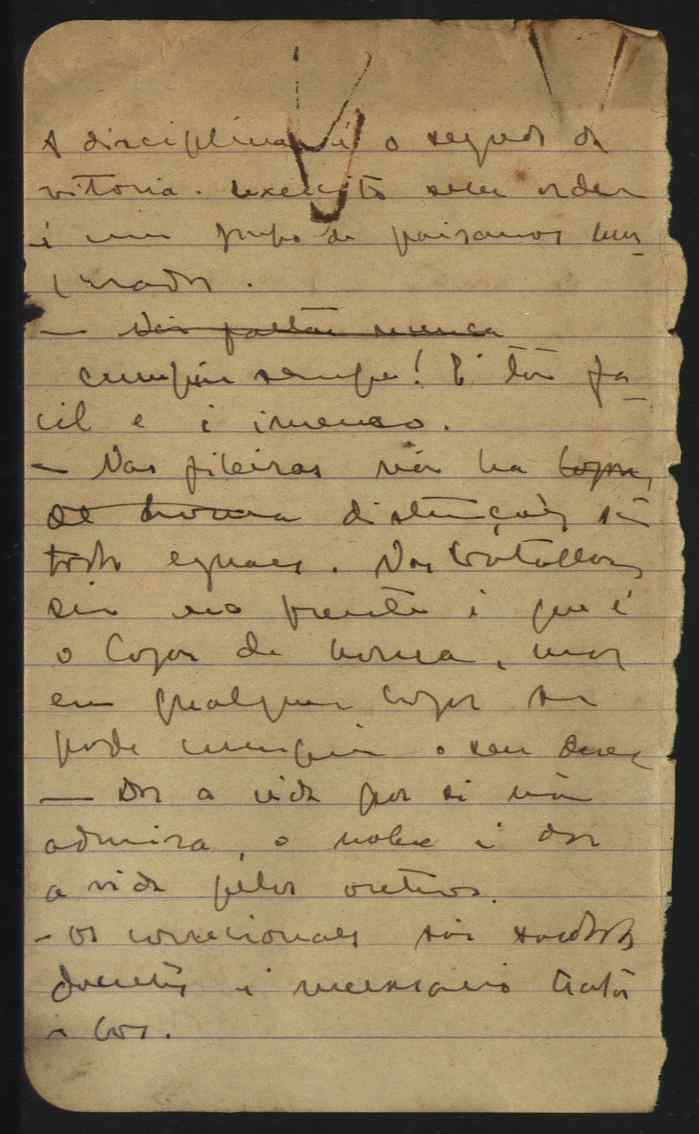 A disciplina é o segredo da
vitoria. Exercito sem ordem
é um grupo de paisanos mas_
carados.
— Não faltar nunca
cumprir sempre! É tão fa_
cil e é imenso.
— Nas fileiras não ha logar,
de honra distinções, são
todos eguaes. Nos batalhões
sim na frente é que é
o logar de honra, mas
em qualquer logar se
pode cumprir o seu dever
— Dar a vida por si não
admira, o nobre é dar
a vida pelos outros.
- Os correcionaes são soldados
doentes é necessario tratá
-los.